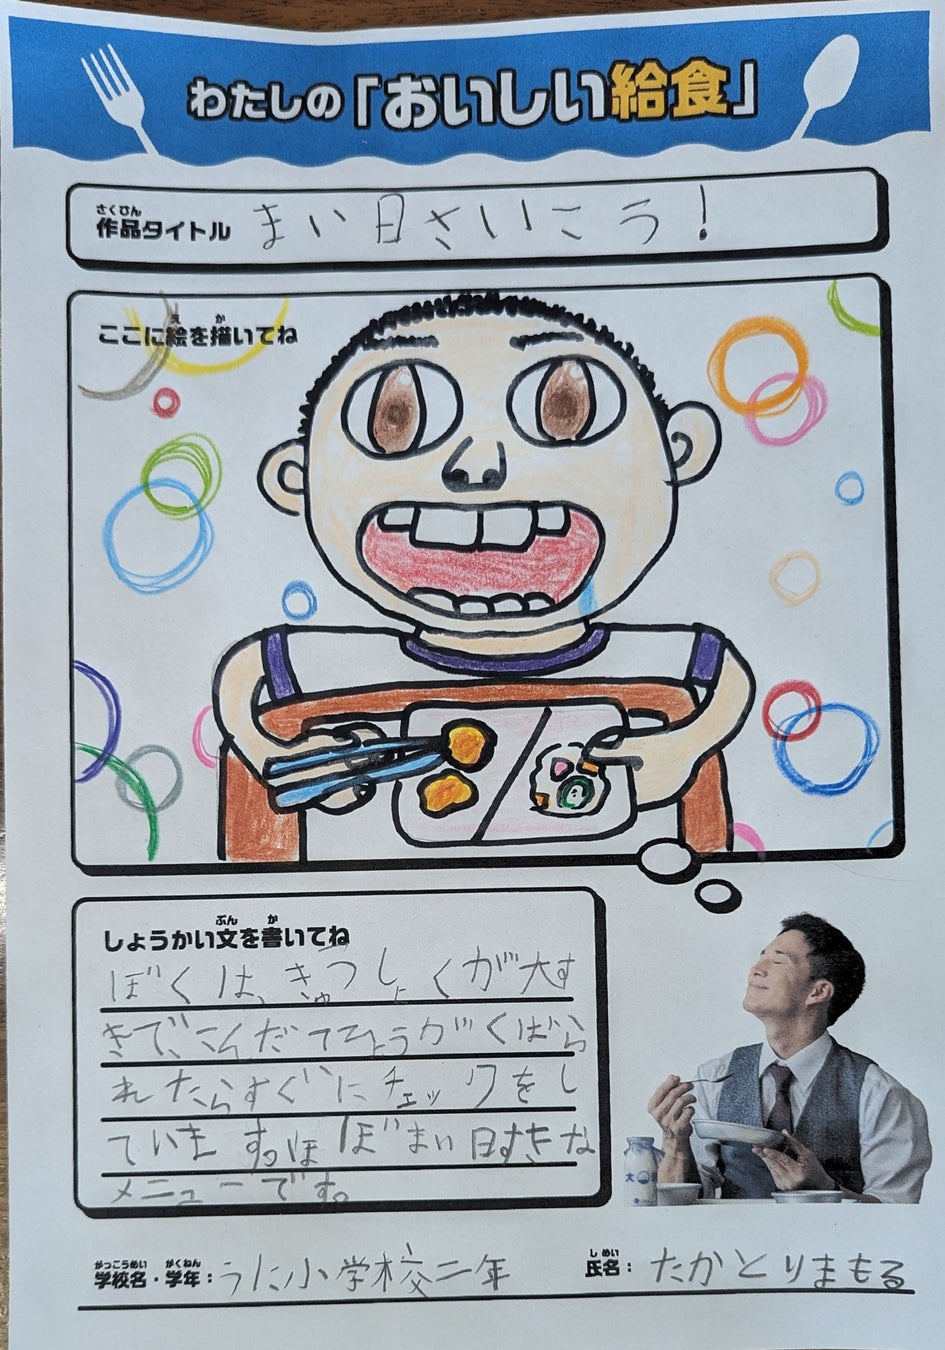 わたしの「おいしい給食」
さくひん
作品タイトル まい日さいこう!
え か
ここに絵を描いてね
ぶん か
しょうかい文を書いてね
ぼくは、きゅうしょくが大す
きで、こんだてひょうがくばら
れたらすぐにチェックをし
ています。ほぼまい日すきな
メニューです。
がっこうめい がくねん
学校名・学年:うに小学校二年
しめい
氏名:たかとりまもる
大